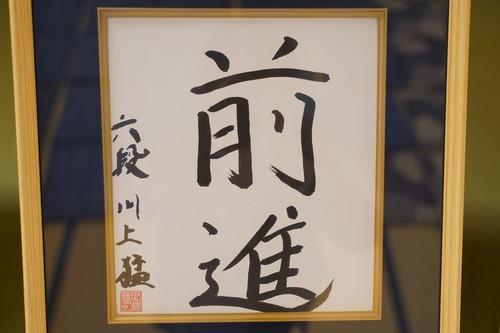 前進
六段 川上猛